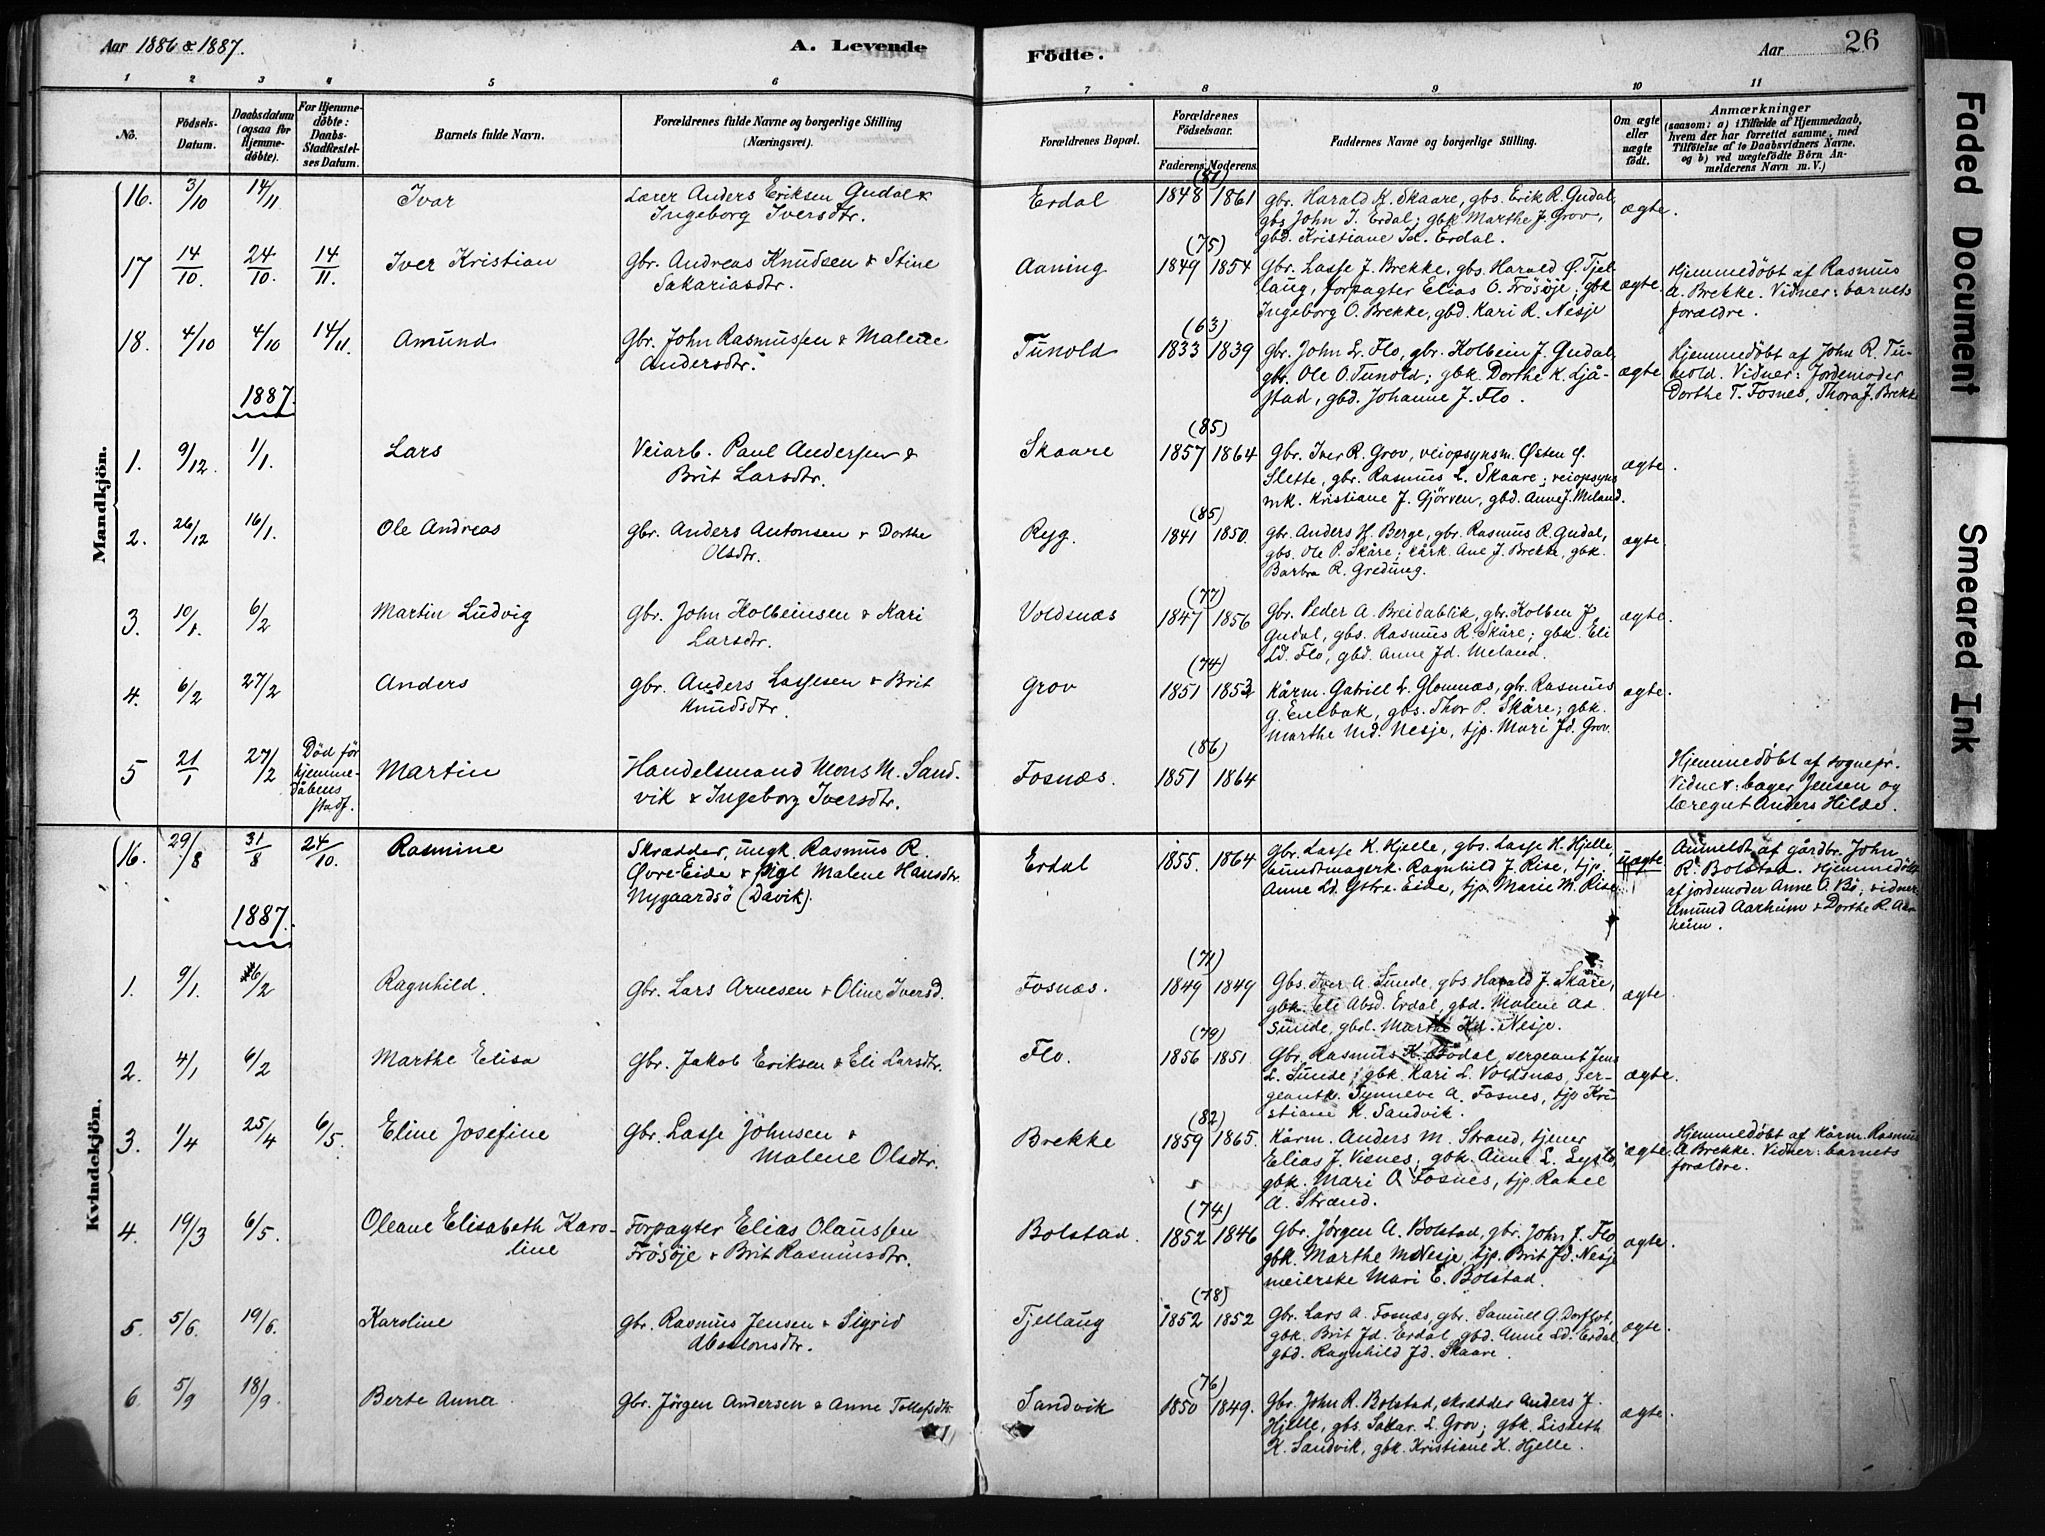 Aar 1886 & 1887.
A. Levende
Födte.
Aar
26
1 2 3 4 5 6 7 8 9 10 11
No.
Födsels-Datum.
Daabsdatum (ogsaa for Hjemme-döbte).
For Hjemme-döbte: Daabs-Stadfæstel-ses Datum.
Barnets fulde Navn.
Forældrenes fulde Navne og borgerlige Stilling (Næringsvei).
Forældrenes Bopæl.
Forældrenes Födselsaar.
Faderens Moderens.
Faddernes Navne og borgerlige Stilling.
Om ægte eller uægte födt.
Anmærkninger
(saasom: a) i Tilfælde af Hjemmedaab,
hvem der har forrettet samme, med
Tilföielse af to Daabsvidners Navne,
og b) ved uægtefödte Börn An-
melderens Navn m. V.)
Mandkjön.
16. 3/10 14/11 Ivar
Lærer Anders Eriksen Gudal &
Ingeborg Iversdtr.
Erdal (81) 1848 1861
gbr. Harald K. Skaare, gbs. Erik R. Gudal,
gbs John I. Erdal; gbk Marthe J. Grov,
gbd. Kristiane Id. Erdal.
ægte.
17 14/10. 24/10. 14/11. Iver Kristian
Gbr. Andreas Knudsen & Stine
Sakariasdtr.
Aaning (75) 1849 1854
Gbr. Lasse J. Brekke, gbs. Harald Ø. Tjel-
laug, forpagter Elias O. Frösöje; gbk
Ingeborg O. Brekke, gbd. Kari R. Nesje
ægte.
Hjemmedöbt af Rasmus
A. Brekke. Vidner: barnets
forældre.
18. 4/10 4/10 14/11. Amund
Gbr. John Rasmussen & Malene
Andersdtr.
Tunold (63) 1833 1839
gbr. John L. Flo, gbr. Kolbein J. Gudal,
gbr. Ole O. Tunold; gbk. Dorthe K. Ljå-
stad, gbd. Johanne J. Flo.
ægte.
Hjemmedöbt af John R. Tu-
nold. Vidner: Jordemoder
Dorthe T. Fosnes, Thora J. Brekke
1887.
1. 9/12. 1/1. Lars
Veiarb. Paul Andersen &
Brit Larsdtr.
Skaare (85) 1857 1864
Gbr. Iver R. Grov, veiopsynsm. Østen Ø.
Slette, gbr. Rasmus L. Skaare; veiopsyns
mk. Kristiane J. Gjörven, gbd. Anne J. Meland.
ægte.
2. 26/12 16/1. Ole Andreas
gbr. Anders Antonsen & Dorthe
Olsdtr.
Ryg. (85) 1841 1850.
gbr. Anders H. Berge, gbr. Rasmus R. Gudal,
gbs. Ole P. Skåre; kårk. Ane J. Brekke, gbk.
Barbra R. Gredung.
ægte.
3. 10/1. 6/2 Martin Ludvig
Gbr. John Kolbeinsen & Kari
Larsdtr.
Voldsnæs (77) 1847 1856
Gbr. Peder A. Breidablik, gbr. Kolben J
Gudal, gbs. Rasmus R. Skåre; gbk. Eli
Ld. Flo, gbd. Anne Jd. Meland.
ægte.
4. 6/2 27/2 Anders
gbr. Anders Lassesen & Brit
Knudsdtr.
Grov (74) 1851 1852
Kårm. Gabriel L. Glomnæs, gbr. Rasmus
G. Eulbak, gbs. Thor P. Skåre; gbk.
Marthe Md. Nesje, tjp. Mari Jd. Grov
ægte.
5 21/1 27/2 Död før hjemme-dåbens stadf. Martin
Handelsmand Mons M. Sand-
vik & Ingeborg Iversdtr.
Fosnæs. (86) 1851 1864
Hjemmedöbt af sognepr.
Vidner: bager Jensen og
læregut Anders Hilde.
Kvindekjön.
16. 29/8 31/8 24/10. Rasmine
Skrædder, ungk. Rasmus R.
Øvre-Eide & pige Malene Hansdtr.
Nygaardsö (Davik).
Erdal 1855. 1864
gbr. Lasse K. Hjelle, gbs. Lasse H. Hjelle,
bundtmagerk. Ragnhild J. Rise, tjp.
Anne Ld. Ytre-Eide, tjp. Marie M. Rise
uægte
Anmeldt af gårdbr. John
R. Bolstad. Hjemmedöbt
af jordemoder Anne O. Bö; vidner
Amund Aarheim & Dorthe R. Aar-
heim.
1887.
1. 9/1. 6/2 Ragnhild.
Gbr. Lars Arnesen & Oline Iversd.
Fosnæs. (71) 1849 1849
Gbs. Iver A. Sunde, gbs. Harald J. Skåre,
gbk. Eli Absd. Erdal, gbd. Malene Ad
Sunde, gbd. Marthe Kd. Nesje.
ægte.
2. 4/1 6/2 Marthe Elisa
Gbr. Jakob Eriksen & Eli Larsdtr.
Flo. (79) 1856 1851
Gbr. Rasmus K. Bödal, sergeant Jens
L. Sunde; gbk. Kari L. Voldsnæs, ser-
geantk. Synneve A. Fosnes, tjp Kri-
stiane K. Sandvik.
ægte.
3. 1/4 25/4 6/5. Eline Josefine
Gbr. Lasse Johnsen &
Malene Olsdtr.
Brekke (82) 1859 1865.
Kårm. Anders M. Strand, tjener
Elias J. Visnes; gbk. Anne L. Lyslo,
gbk. Mari O. Fosnes, tjp. Rakel
A. Strand.
ægte.
Hjemmedöbt af kårm. Rasmus
A. Brekke. Vidner: barnets
forældre.
4. 19/3 6/5. Oleane Elisabeth Karo-
line
Forpagter Elias Olaussen
Frösöje & Brit Rasmusdtr.
Bolstad. (74) 1852 1846
Gbr. Jørgen A. Bolstad, gbr. John J. Flo
gbk. Marthe M Nesje, tjp. Brit Jd. Nesje
meierske Mari E. Bolstad.
ægte.
5. 5/6. 19/6. Karoline
gbr. Rasmus Jensen & Sigrid
Absalonsdtr.
Tjellaug (78) 1852 1852
Gbr. Lars A. Fosnæs, gbr. Samuel G. Dorffot,
gbk. Brit Jd. Erdal, gbd. Anne Ld. Erdal
gbd. Ragnhild Jd. Skaare.
ægte.
6 5/9 18/9. Berte Anna
Gbr. Jörgen Andersen & Anne Tollefsdtr.
Sandvik (76) 1850 1849.
Gbr. John R. Bolstad, skrædder Anders J.
Hjelle, gbs. Sakar. L. Grov; gbk. Lisbeth
K. Sandvik, gbk. Kristiane K. Hjelle.
ægte.
Faded Document
Smeared Ink